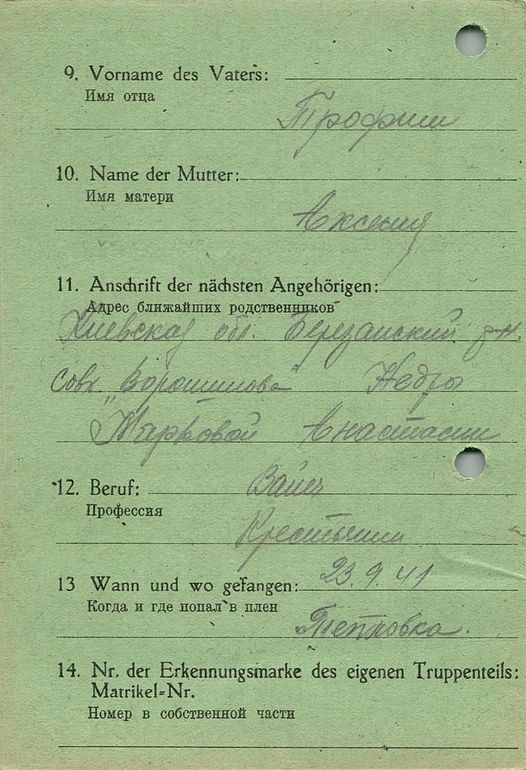 9. Vorname des Vaters:
Имя отца
Трофим
10. Name der Mutter:
Имя матери
Аксения
11. Anschrift der nächsten Angehörigen:
Адрес ближайших родственников
Киевская обл. Березанский р-н.
Совх "Ворошилова" Недры
Марковой Анастасии
12. Beruf:
Профессия
Крестьянин
13 Wann und wo gefangen: 23.9.41
Когда и где попал в плен
14. Nr. der Erkennungsmarke des eigenen Truppenteils:
Matrikel-Nr.
Номер в собственной части